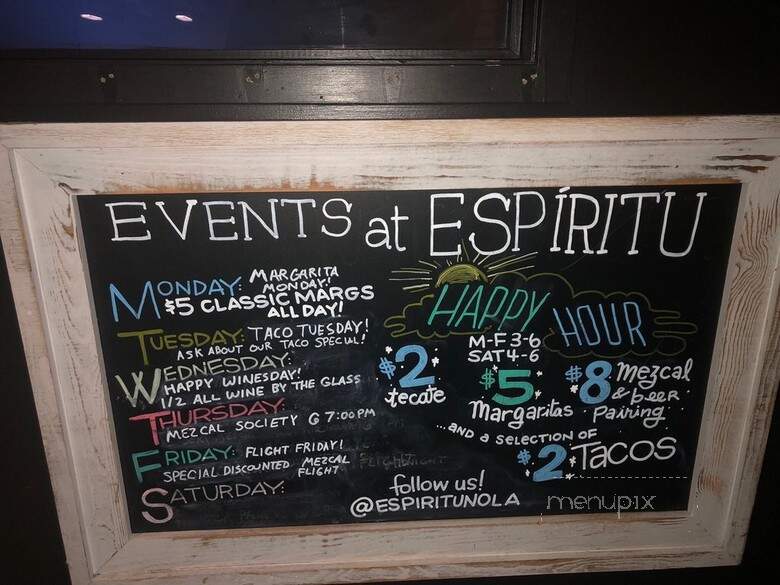 EVENTS at ESPÍRITU
MONDAY: MARGARITA
MONDAY!
$5 CLASSIC MARGS
ALL DAY!
TUESDAY: TACO TUESDAY!
ASK ABOUT OUR TACO SPECIAL!
WEDNESDAY:
HAPPY WINESDAY!
1/2 ALL WINE BY THE GLASS
THURSDAY:
MEZCAL SOCIETY @ 7:00PM
FRIDAY: FLIGHT FRIDAY!
SPECIAL DISCOUNTED MEZCAL
FLIGHT
SATURDAY:
HAPPY HOUR
M-F 3-6
SAT 4-6
$2
tecate
$5
Margaritas
$8 Mezcal
& beer
Pairing
...and a selection of
$2 Tacos
follow us!
@ESPIRITUNOLA
menupix